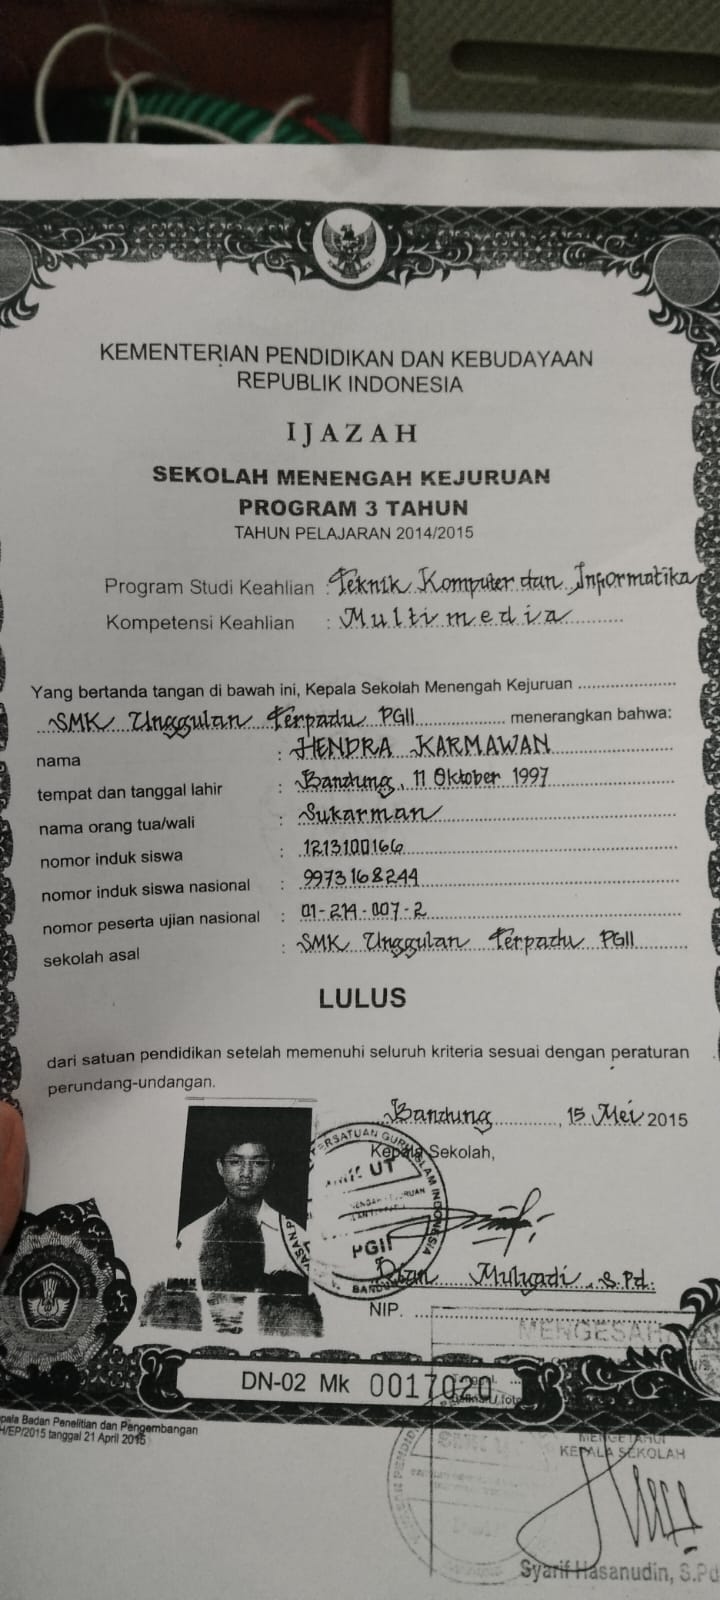 KEMENTERIAN PENDIDIKAN DAN KEBUDAYAAN
REPUBLIK INDONESIA
IJAZAH
SEKOLAH MENENGAH KEJURUAN
PROGRAM 3 TAHUN
TAHUN PELAJARAN 2014/2015
Program Studi Keahlian : Teknik Komputer dan Informatika
Kompetensi Keahlian : Multimedia
Yang bertanda tangan di bawah ini, Kepala Sekolah Menengah Kejuruan
SMK Unggulan Terpadu PGII menerangkan bahwa:
nama : HENDRA KARMAWAN
tempat dan tanggal lahir : Bandung, 11 Oktober 1997
nama orang tua/wali : Sukarman
nomor induk siswa : 1213100166
nomor induk siswa nasional : 9973168244
nomor peserta ujian nasional : 01-214-007-2
sekolah asal : SMK Unggulan Terpadu PGII
LULUS
dari satuan pendidikan setelah memenuhi seluruh kriteria sesuai dengan peraturan
perundang-undangan.
Bandung, 15 Mei 2015
Kepala Sekolah,
PERSATUAN GURU ISLAM INDONESIA
UT
PGII
Dian Mulyadi, S.Pd.
NIP.
MENGESAHKAN
DN-02 Mk 0017020
pala Badan Penelitian dan Pengembangan
H/EP/2015 tanggal 21 April 2015
MENGETAHUI
KEPALA SEKOLAH
Syarif Hasanudin, S.Pd